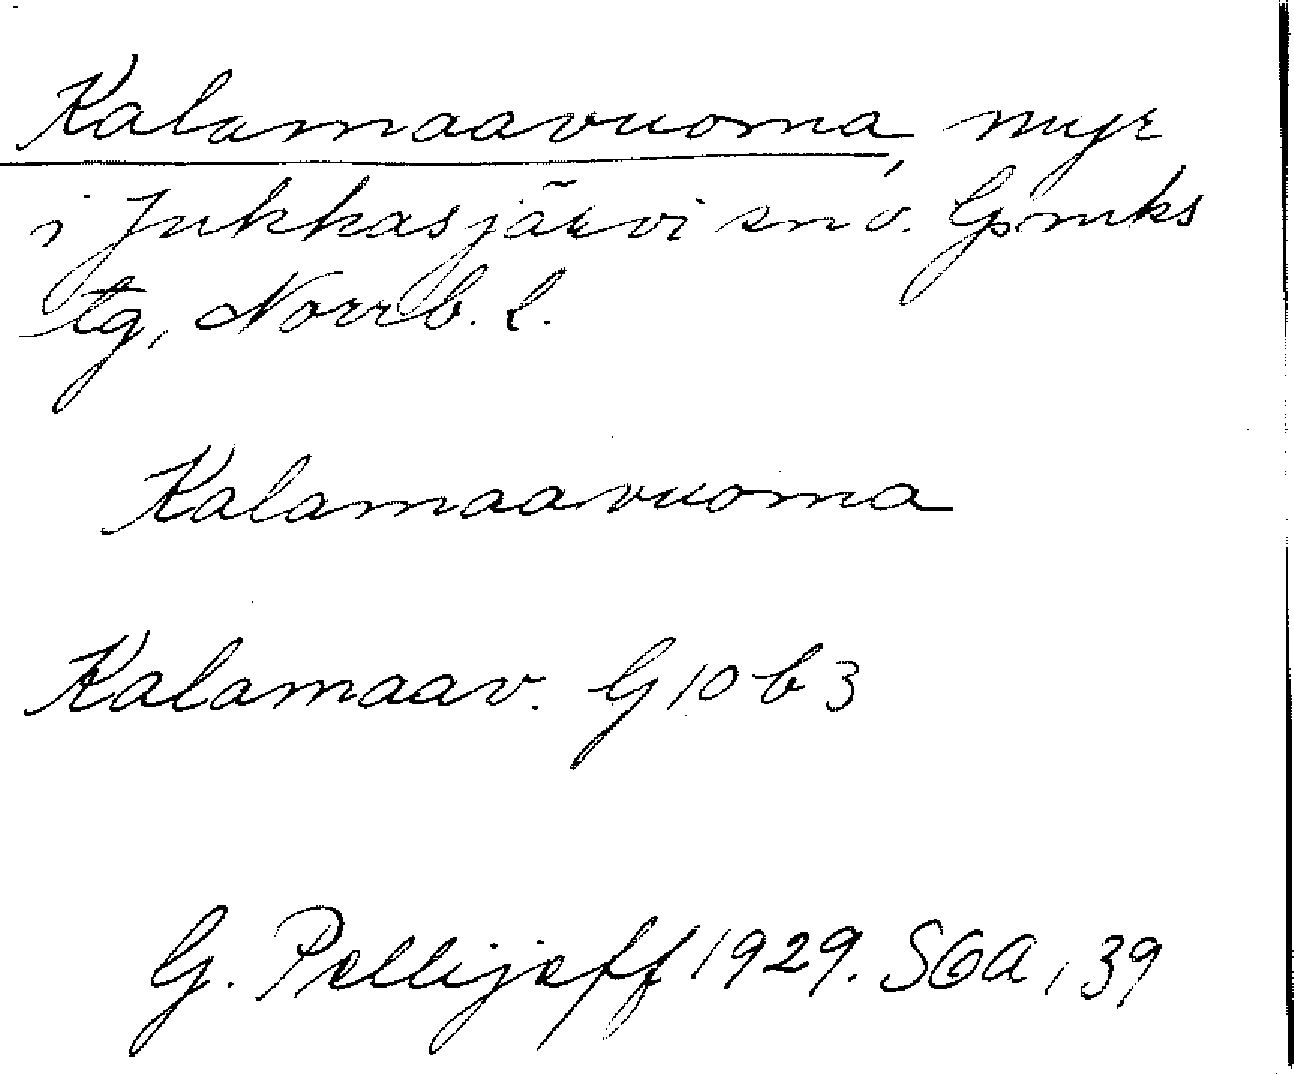 Kalamaavuoma, myr
i Jukkasjärvi sn o. Gp.mks
tg, Norrb. l.
Kalamaavuoma
Kalamaav. G 10 b 3
G. Pellijeff 1929. SOA, 39